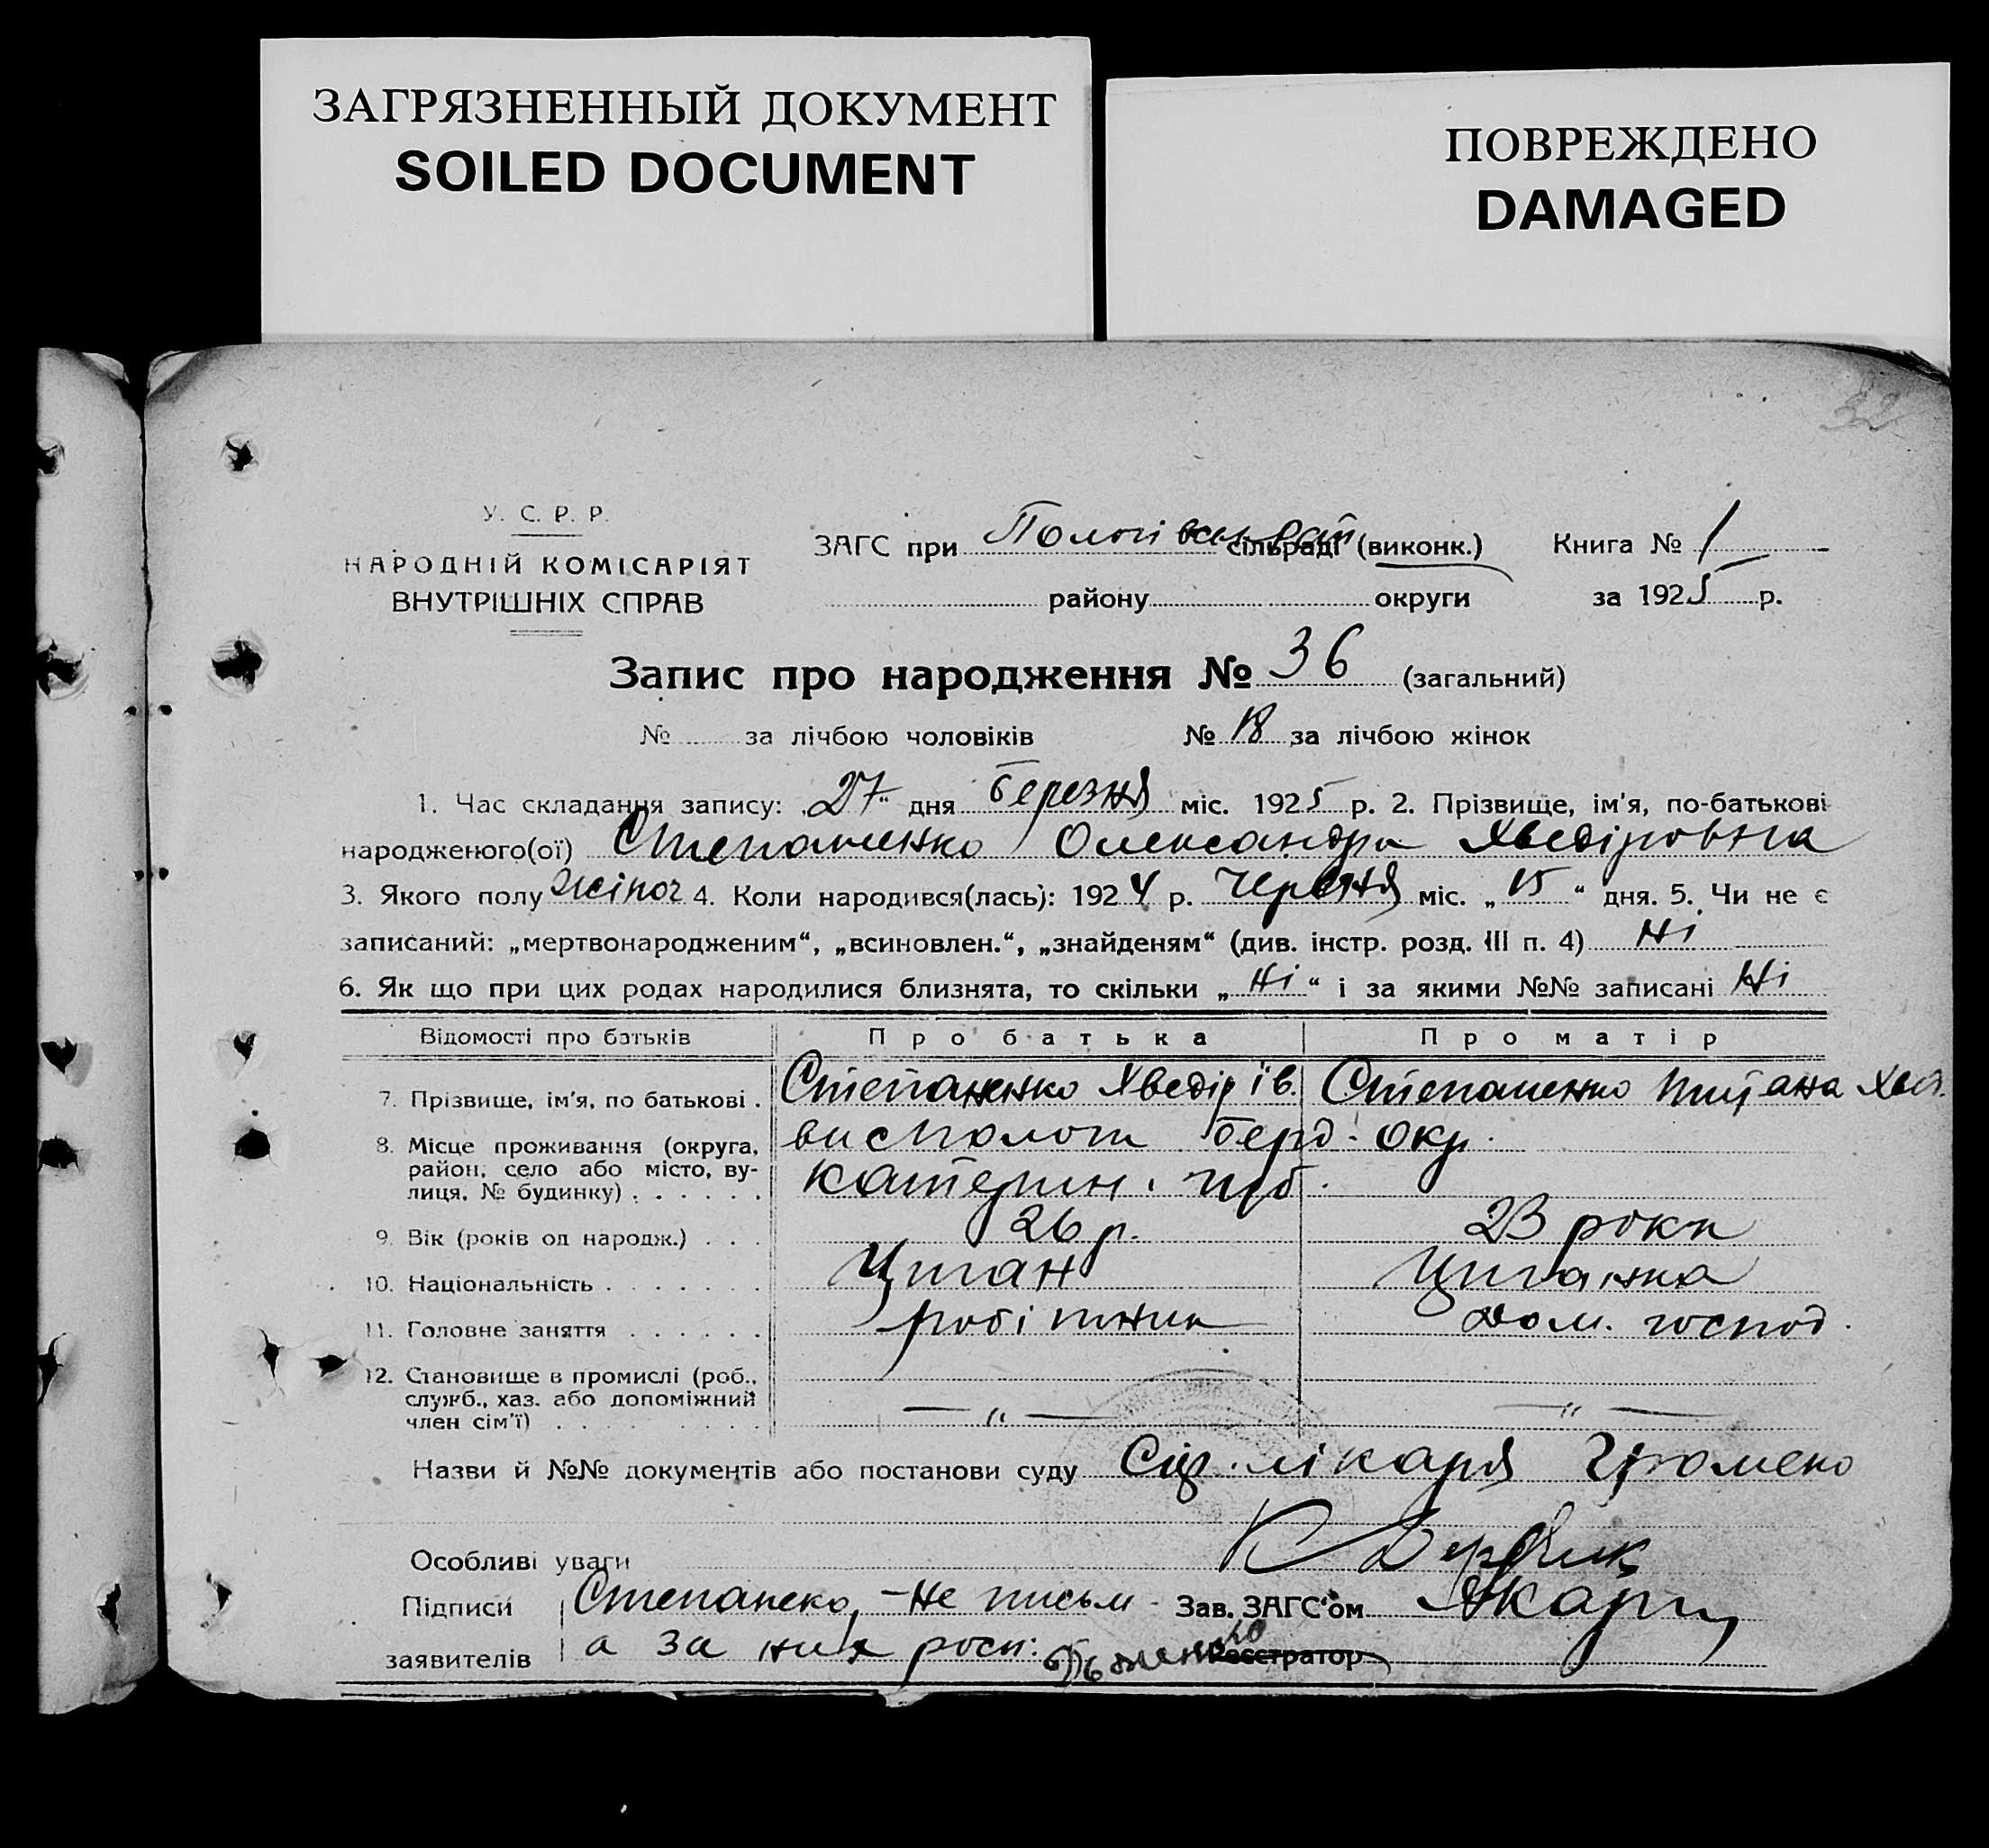 ЗАГРЯЗНЕННЫЙ ДОКУМЕНТ
SOILED DOCUMENT
ПОВРЕЖДЕНО
DAMAGED
32
У. С. Р. Р.
НАРОДНІЙ КОМІСАРІЯТ
ВНУТРІШНІХ СПРАВ
ЗАГС при сільраді (виконк.) Книга № 1
району округи за 1925 р.
Запис про народження № 36 (загальний)
№ за лічбою чоловіків № 18 за лічбою жінок
1. Час складання запису: „27“ дня березня міс. 1925 р. 2. Прізвище, ім'я, по-батькові
народженого(ої) Степаненко Олександра Хведіровна
3. Якого полу жіноч 4. Коли народився(лась): 1924 р. Червня міс. „15“ дня. 5. Чи не є
записаний: „мертвонародженим“, „всиновлен.“, „знайденям“ (див. інстр. розд. III п. 4) Ні
6. Як що при цих родах народилися близнята, то скільки „Ні“ і за якими №№ записані Ні
Відомості про батьків Про батька Про матір
7. Прізвище, ім'я, по батькові . Степаненко Хведір Ів. Степаненко
8. Місце проживання (округа, Берд. Окр.
район, село або місто, ву-
лиця, № будинку) . . . . . . Катерин. губ.
9. Вік (років од народж.) . . . 26 р. 23 роки
10. Національність . . . . . . . Циган Циганка
11. Головне заняття . . . . . . робітник дом. господ.
12. Становище в промислі (роб.,
служб., хаз. або допоміжний
член сім'ї) — „ — — „ —
Назви й №№ документів або постанови суду лікаря
Особливі уваги
Підписи Степанеко, – не письм - Зав. ЗАГС'ом
заявителів а за них росп: Реєстратор